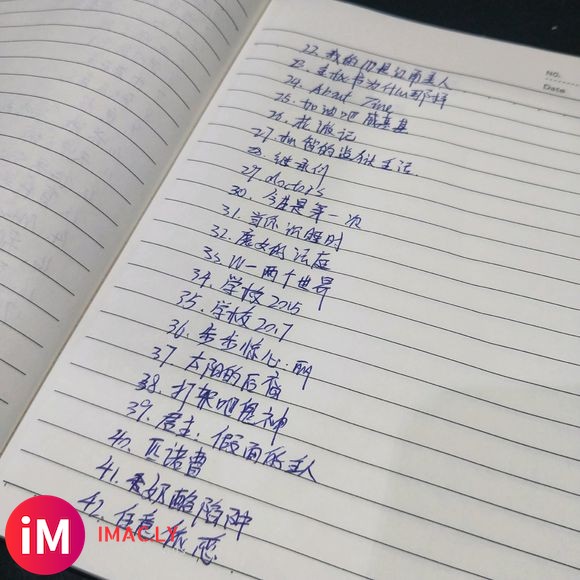 NO.
Date
22. 我的ID是江南美人
23. 金秘书为什么那样
24. About Time
25. 加油吧威基基
26. 花游记
27. 机智的监狱生活
28. 继承们
29. doctors
30. 今生是第一次
31. 当你沉睡时
32. 魔女的法庭
33. W-两个世界
34. 学校2015
35. 学校2017
36. 步步惊心:丽
37. 太阳的后裔
38. 打架吧鬼神
39. 君主:假面的主人
40. 匹诺曹
41. 奶酪陷阱
42. 任意依恋
iM
IMAC.LY